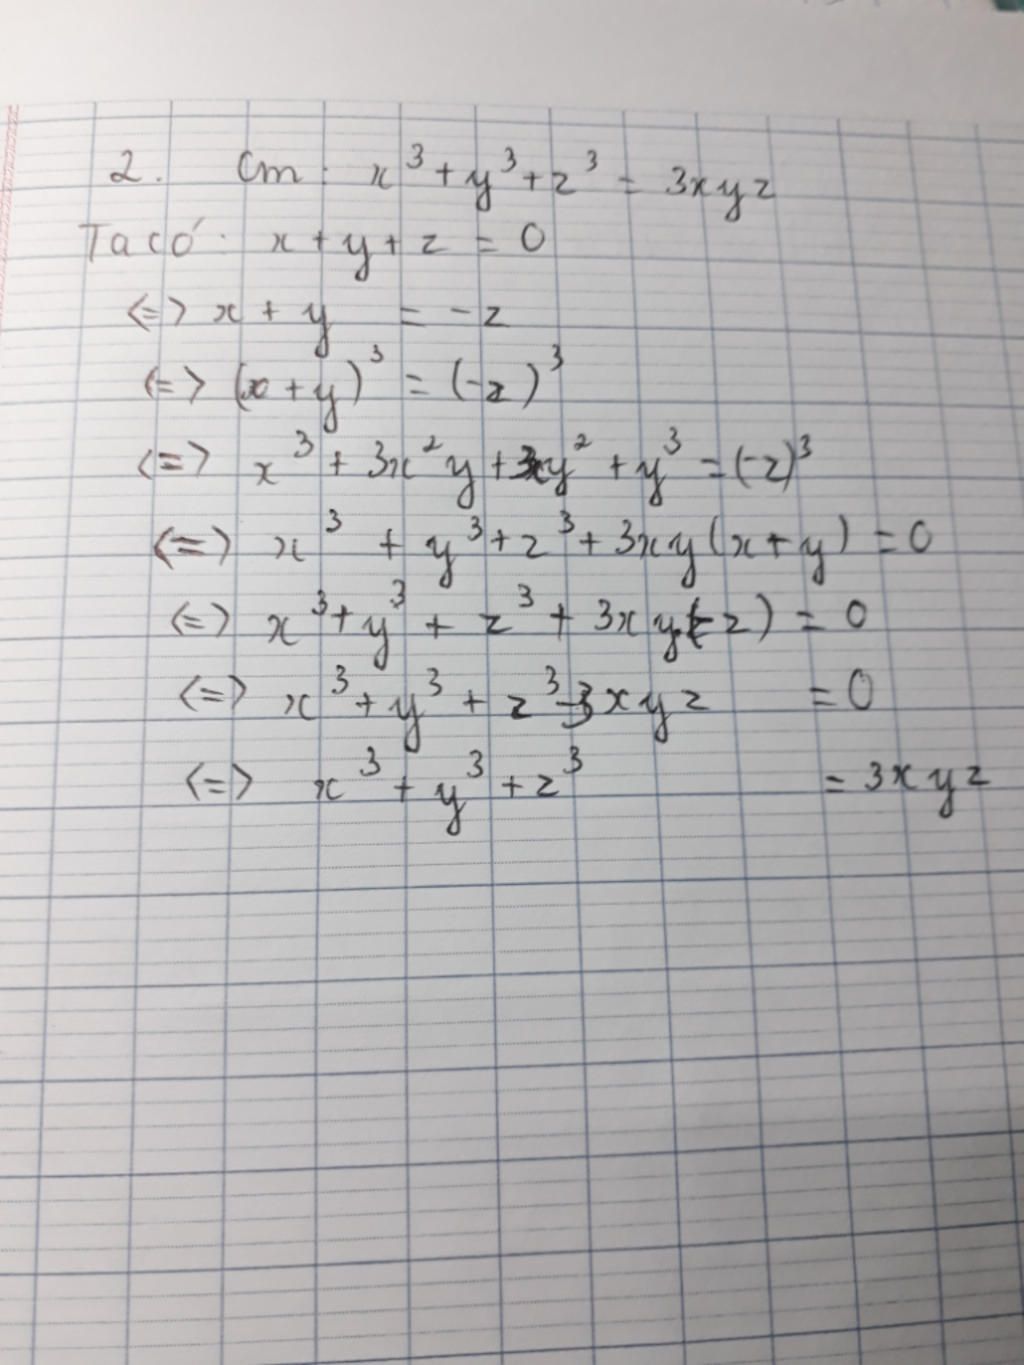 2. Cm: x³ + y³ + z³ = 3xyz
Ta có: x + y + z = 0
<=> x + y = -z
<=> (x + y)³ = (-z)³
<=> x³ + 3x²y + 3xy² + y³ = (-z)³
<=> x³ + y³ + z³ + 3xy(x + y) = 0
<=> x³ + y³ + z³ + 3xy(-z) = 0
<=> x³ + y³ + z³ - 3xyz = 0
<=> x³ + y³ + z³ = 3xyz